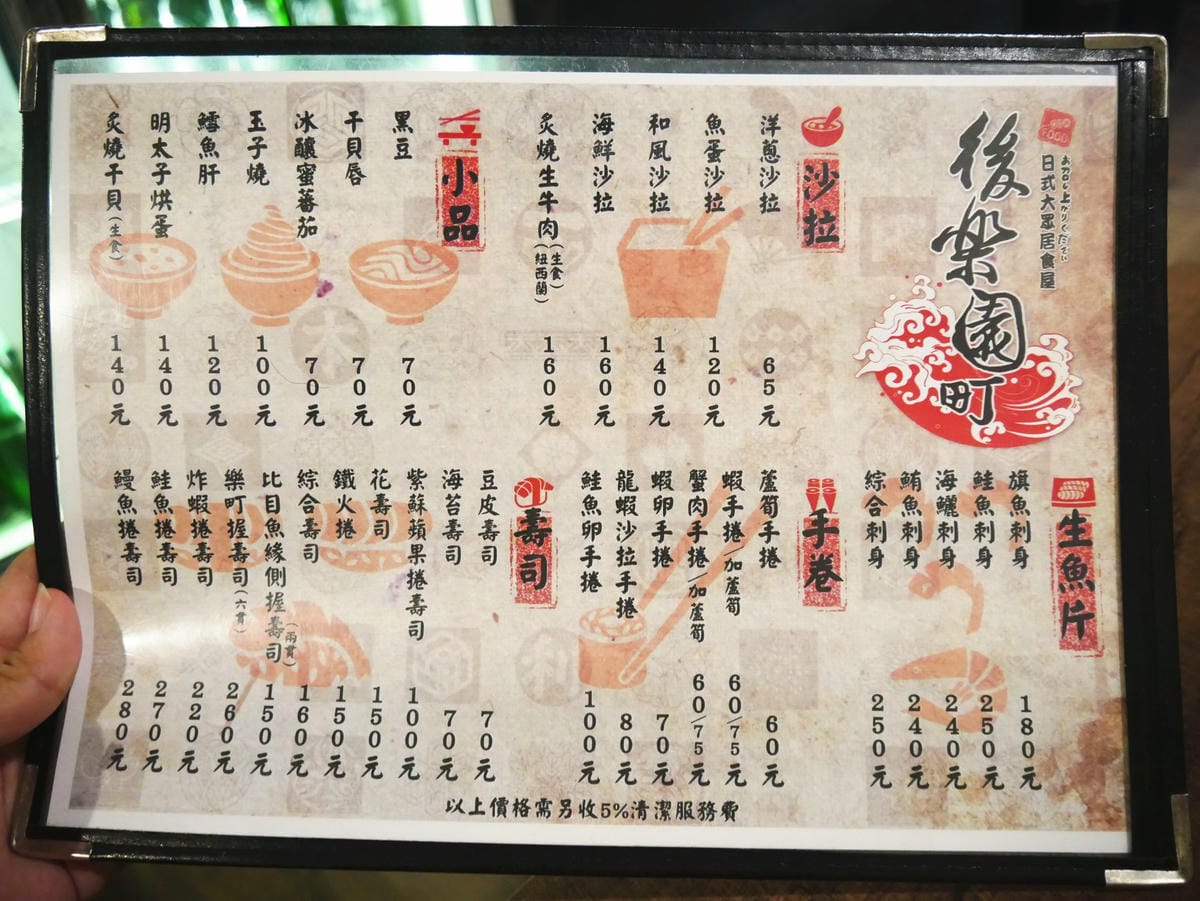 後樂園町
日式大眾居食屋
沙拉
洋蔥沙拉 65元
魚蛋沙拉 120元
和風沙拉 140元
海鮮沙拉 160元
炙燒生牛肉(生食)(紐西蘭) 160元
小品
黑豆 70元
干貝唇 70元
冰釀蜜蕃茄 70元
玉子燒 100元
鱈魚肝 120元
明太子烘蛋 140元
炙燒干貝(生食) 140元
生魚片
旗魚刺身 180元
鮭魚刺身 250元
海鱺刺身 240元
鮪魚刺身 240元
綜合刺身 250元
手卷
蘆筍手捲 60元
蝦手捲/加蘆筍 60/75元
蟹肉手捲/加蘆筍 60/75元
蝦卵手捲 70元
龍蝦沙拉手捲 80元
鮭魚卵手捲 100元
壽司
豆皮壽司 70元
海苔壽司 70元
紫蘇蘋果捲壽司 100元
花壽司 150元
鐵火捲 150元
綜合壽司 160元
比目魚緣側握壽司(兩貫) 150元
樂町握壽司(六貫) 260元
炸蝦捲壽司 220元
鮭魚捲壽司 270元
鰻魚捲壽司 280元
以上價格需另收5%清潔服務費